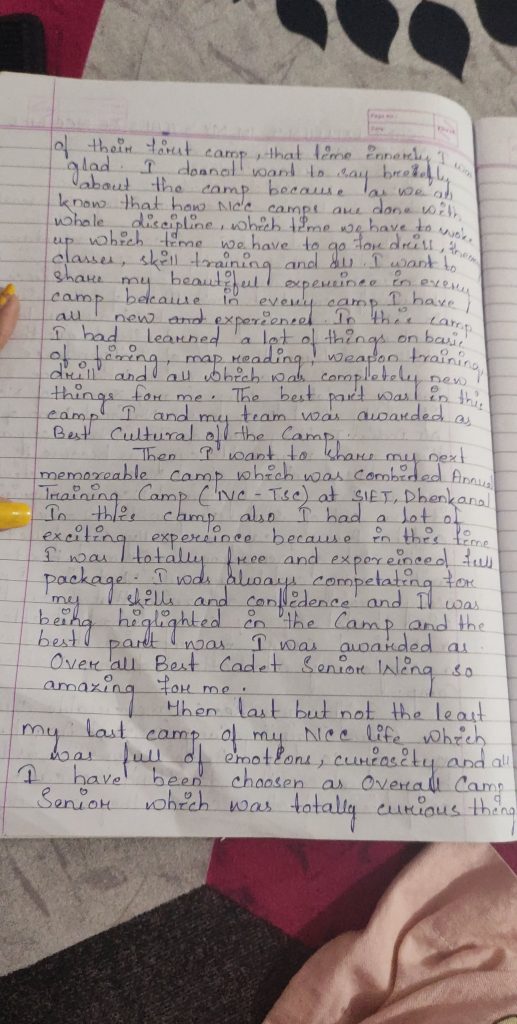 Page No.:
Date
of their first camp, that time innerly I was
glad. I doonot want to say breefly
about the camp because as we all
know that how Ncc camps are done with
whole discipline, which time we have to woke
up which time we have to go for drill, theory
classes, skill training and all. I want to
share my beautiful expereince in every
camp because in every camp I have
all new and experienced. In this camp
I had learned a lot of things on basic
of firing, map reading, weapon training,
drill and all which was completely new
things for me. The best part was in this
camp I and my team was awarded as
Best Cultural of the Camp.
Then I want to share my next
memoreable camp which was Combided Annual
Training Camp (IVC - TSC) at SIET, Dhenkanal
In this camp also I had a lot of
exciting expereince because in this time
I was totally free and expereinced full
package. I was always competating for
my skills and confidence and I was
being higlighted in the Camp and the
best part was I was awarded as
Over all Best Cadet Senior Wing so
amazing for me.
then last but not the least
my last camp of my Ncc life which
was full of emotions, curiosity and all
I have been choosen as Overall Camp
Senior which was totally curious thing